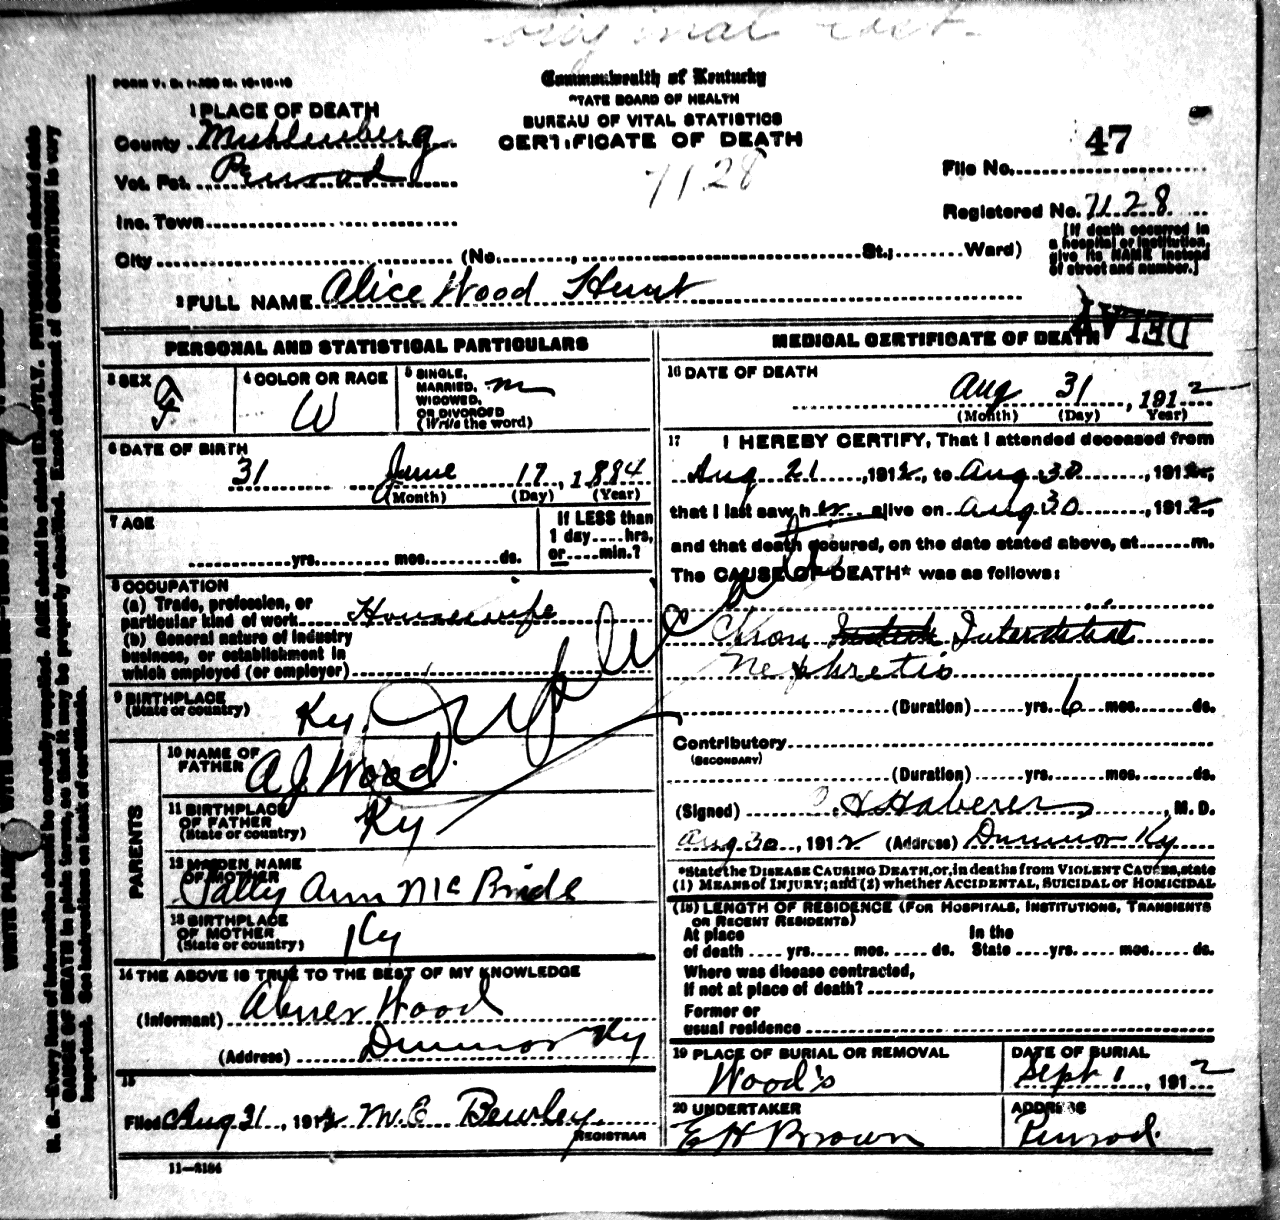 original cert.
Commonwealth of Kentucky
STATE BOARD OF HEALTH
BUREAU OF VITAL STATISTICS
CERTIFICATE OF DEATH
7128
1 PLACE OF DEATH
County Muhlenberg
Vot. Pct. Penrod
Inc. Town
City (No. , St.; Ward)
47
File No.
Registered No. 7128
[If death occurred in
a hospital or institution,
give its NAME instead
of street and number.]
2 FULL NAME Alice Wood Hunt
DELAY
PERSONAL AND STATISTICAL PARTICULARS
3 SEX F
4 COLOR OR RACE W
5 SINGLE,
MARRIED,
WIDOWED,
OR DIVORCED
(Write the word) m
6 DATE OF BIRTH
31 June 17, 1884
(Month) (Day) (Year)
7 AGE
yrs. mos. ds.
If LESS than
1 day hrs,
or min.?
8 OCCUPATION
(a) Trade, profession, or
particular kind of work Housewife
(b) General nature of industry
business, or establishment in
which employed (or employer)
Duplicate
9 BIRTHPLACE
(State or country) Ky.
PARENTS
10 NAME OF
FATHER A J Wood
11 BIRTHPLACE
OF FATHER
(State or country) Ky
12 MAIDEN NAME
OF MOTHER Sally Ann McBride
13 BIRTHPLACE
OF MOTHER
(State or country) Ky
14 THE ABOVE IS TRUE TO THE BEST OF MY KNOWLEDGE
(Informant) Abner Wood
(Address) Dunmor Ky
15
Filed Aug 31, 1912 M.E. Bewley
REGISTRAR
11—2184
MEDICAL CERTIFICATE OF DEATH
16 DATE OF DEATH
Aug 31, 1912
(Month) (Day) Year)
17 I HEREBY CERTIFY, That I attended deceased from
Aug 21, 1912, to Aug 30, 1912,
that I last saw her alive on Aug 30, 1912,
and that death occured, on the date stated above, at m.
The CAUSE OF DEATH* was as follows:
Chron Interstitial
Nephretis
(Duration) yrs. 6 mos. ds.
Contributory
(SECONDARY)
(Duration) yrs. mos. ds.
(Signed) H Haberer, M. D.
Aug 30, 1912 (Address) Dunmor Ky
*State the DISEASE CAUSING DEATH, or, in deaths from VIOLENT CAUSES, state
(1) MEANS of INJURY; and (2) whether ACCIDENTAL, SUICIDAL or HOMICIDAL
(18) LENGTH OF RESIDENCE (FOR HOSPITALS, INSTITUTIONS, TRANSIENTS
OR RECENT RESIDENTS)
At place In the
of death yrs. mos. ds. State yrs. mos. ds.
Where was disease contracted,
If not at place of death?
Former or
usual residence
19 PLACE OF BURIAL OR REMOVAL
Wood's
DATE OF BURIAL
Sept 1, 1912
20 UNDERTAKER
E H Brown
ADDRESS
Penrod.
N. B.—Every item of information should be carefully supplied. AGE should be stated EXACTLY. PHYSICIANS should state
CAUSE OF DEATH in plain terms, so that it may be properly classified. Exact statement of OCCUPATION is very
important. See instructions on back of certificate.